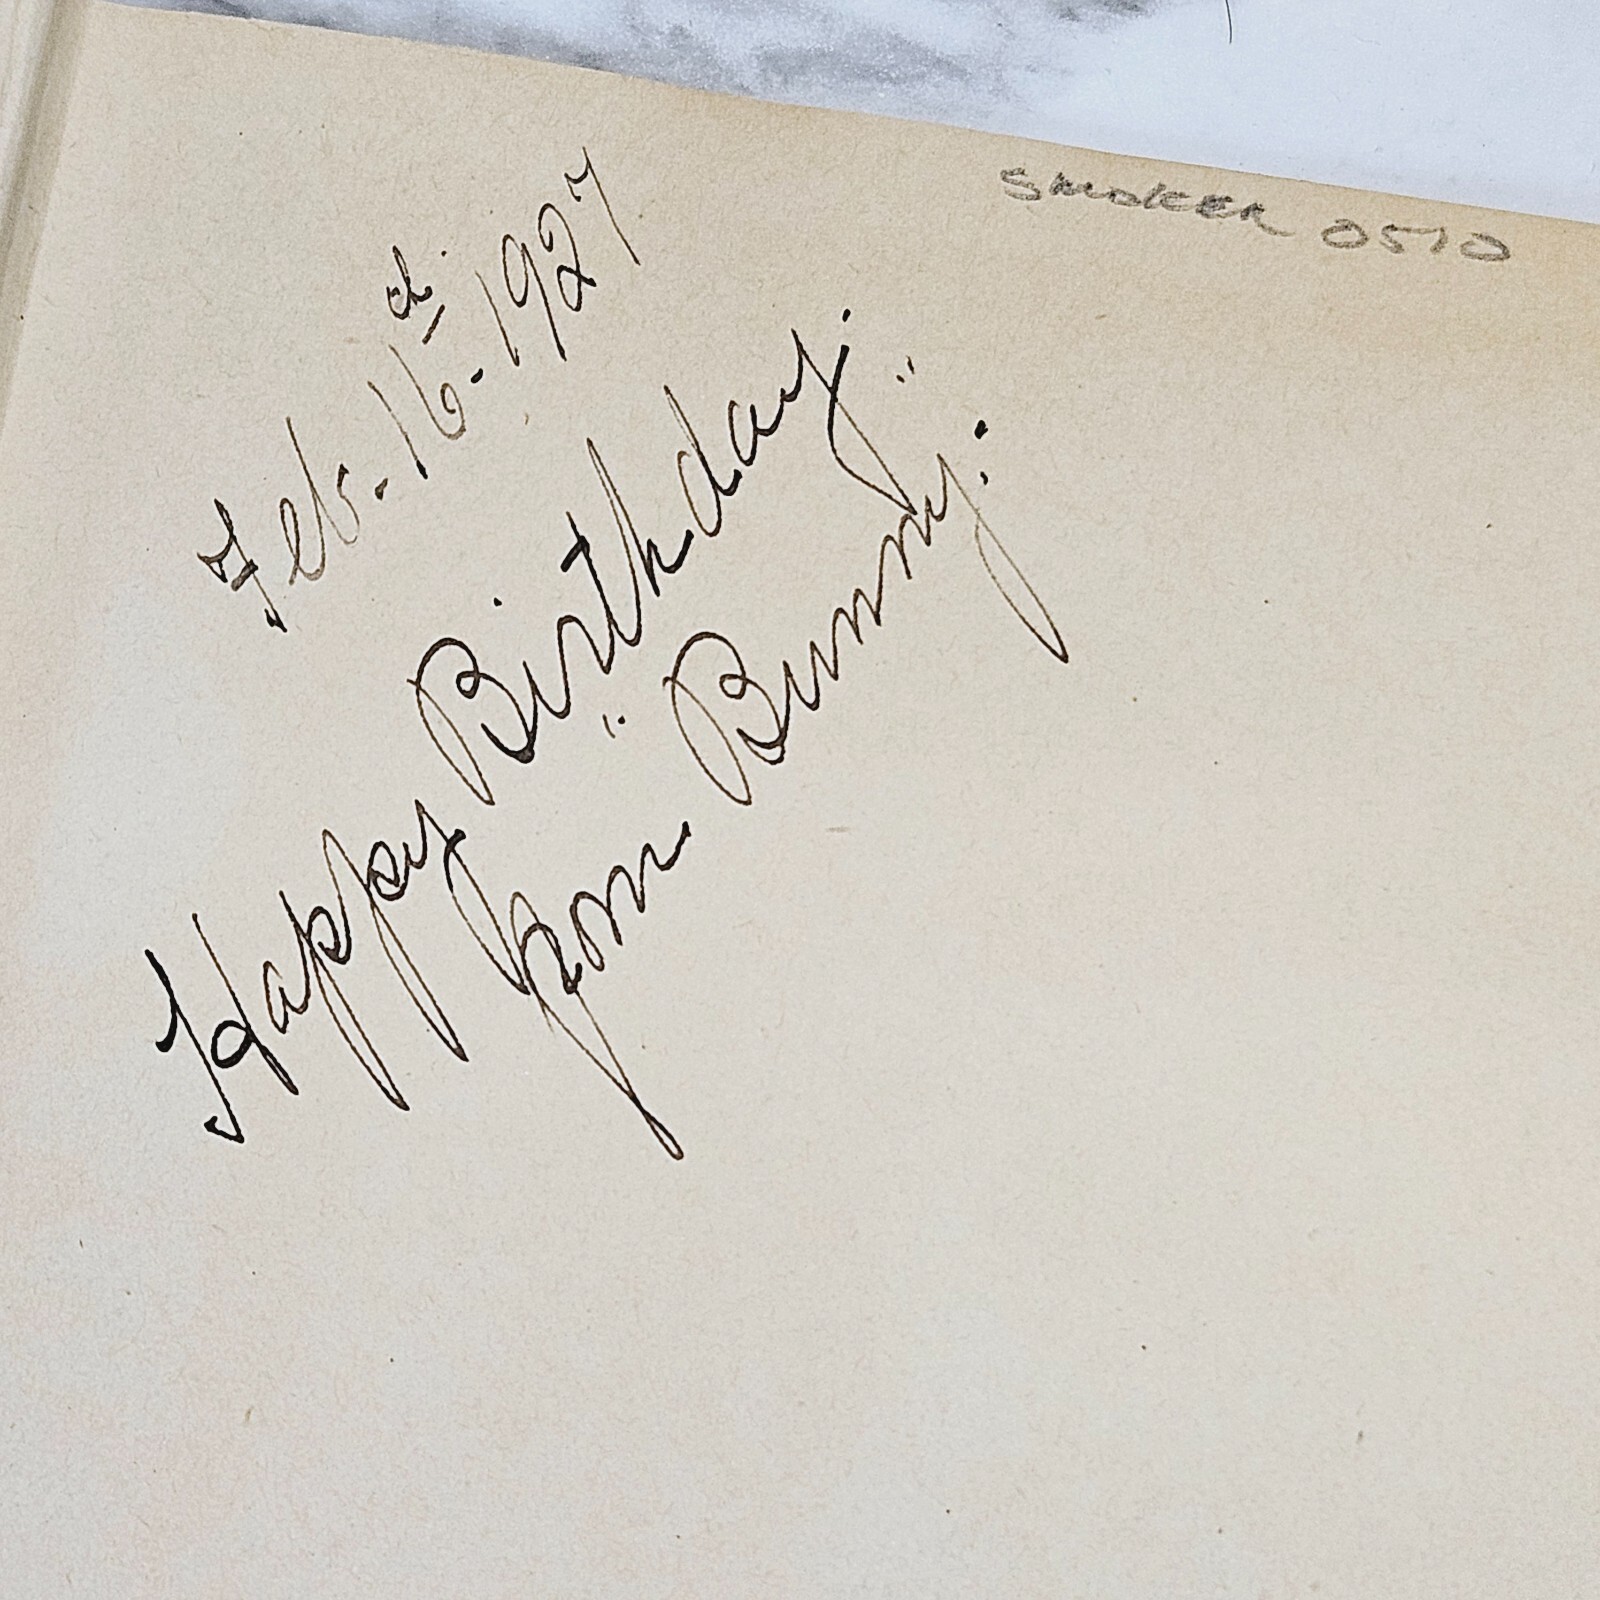 SMOKER 0510
Feb. 16th. 1927
Happy Birthday.
"From "Bunny":